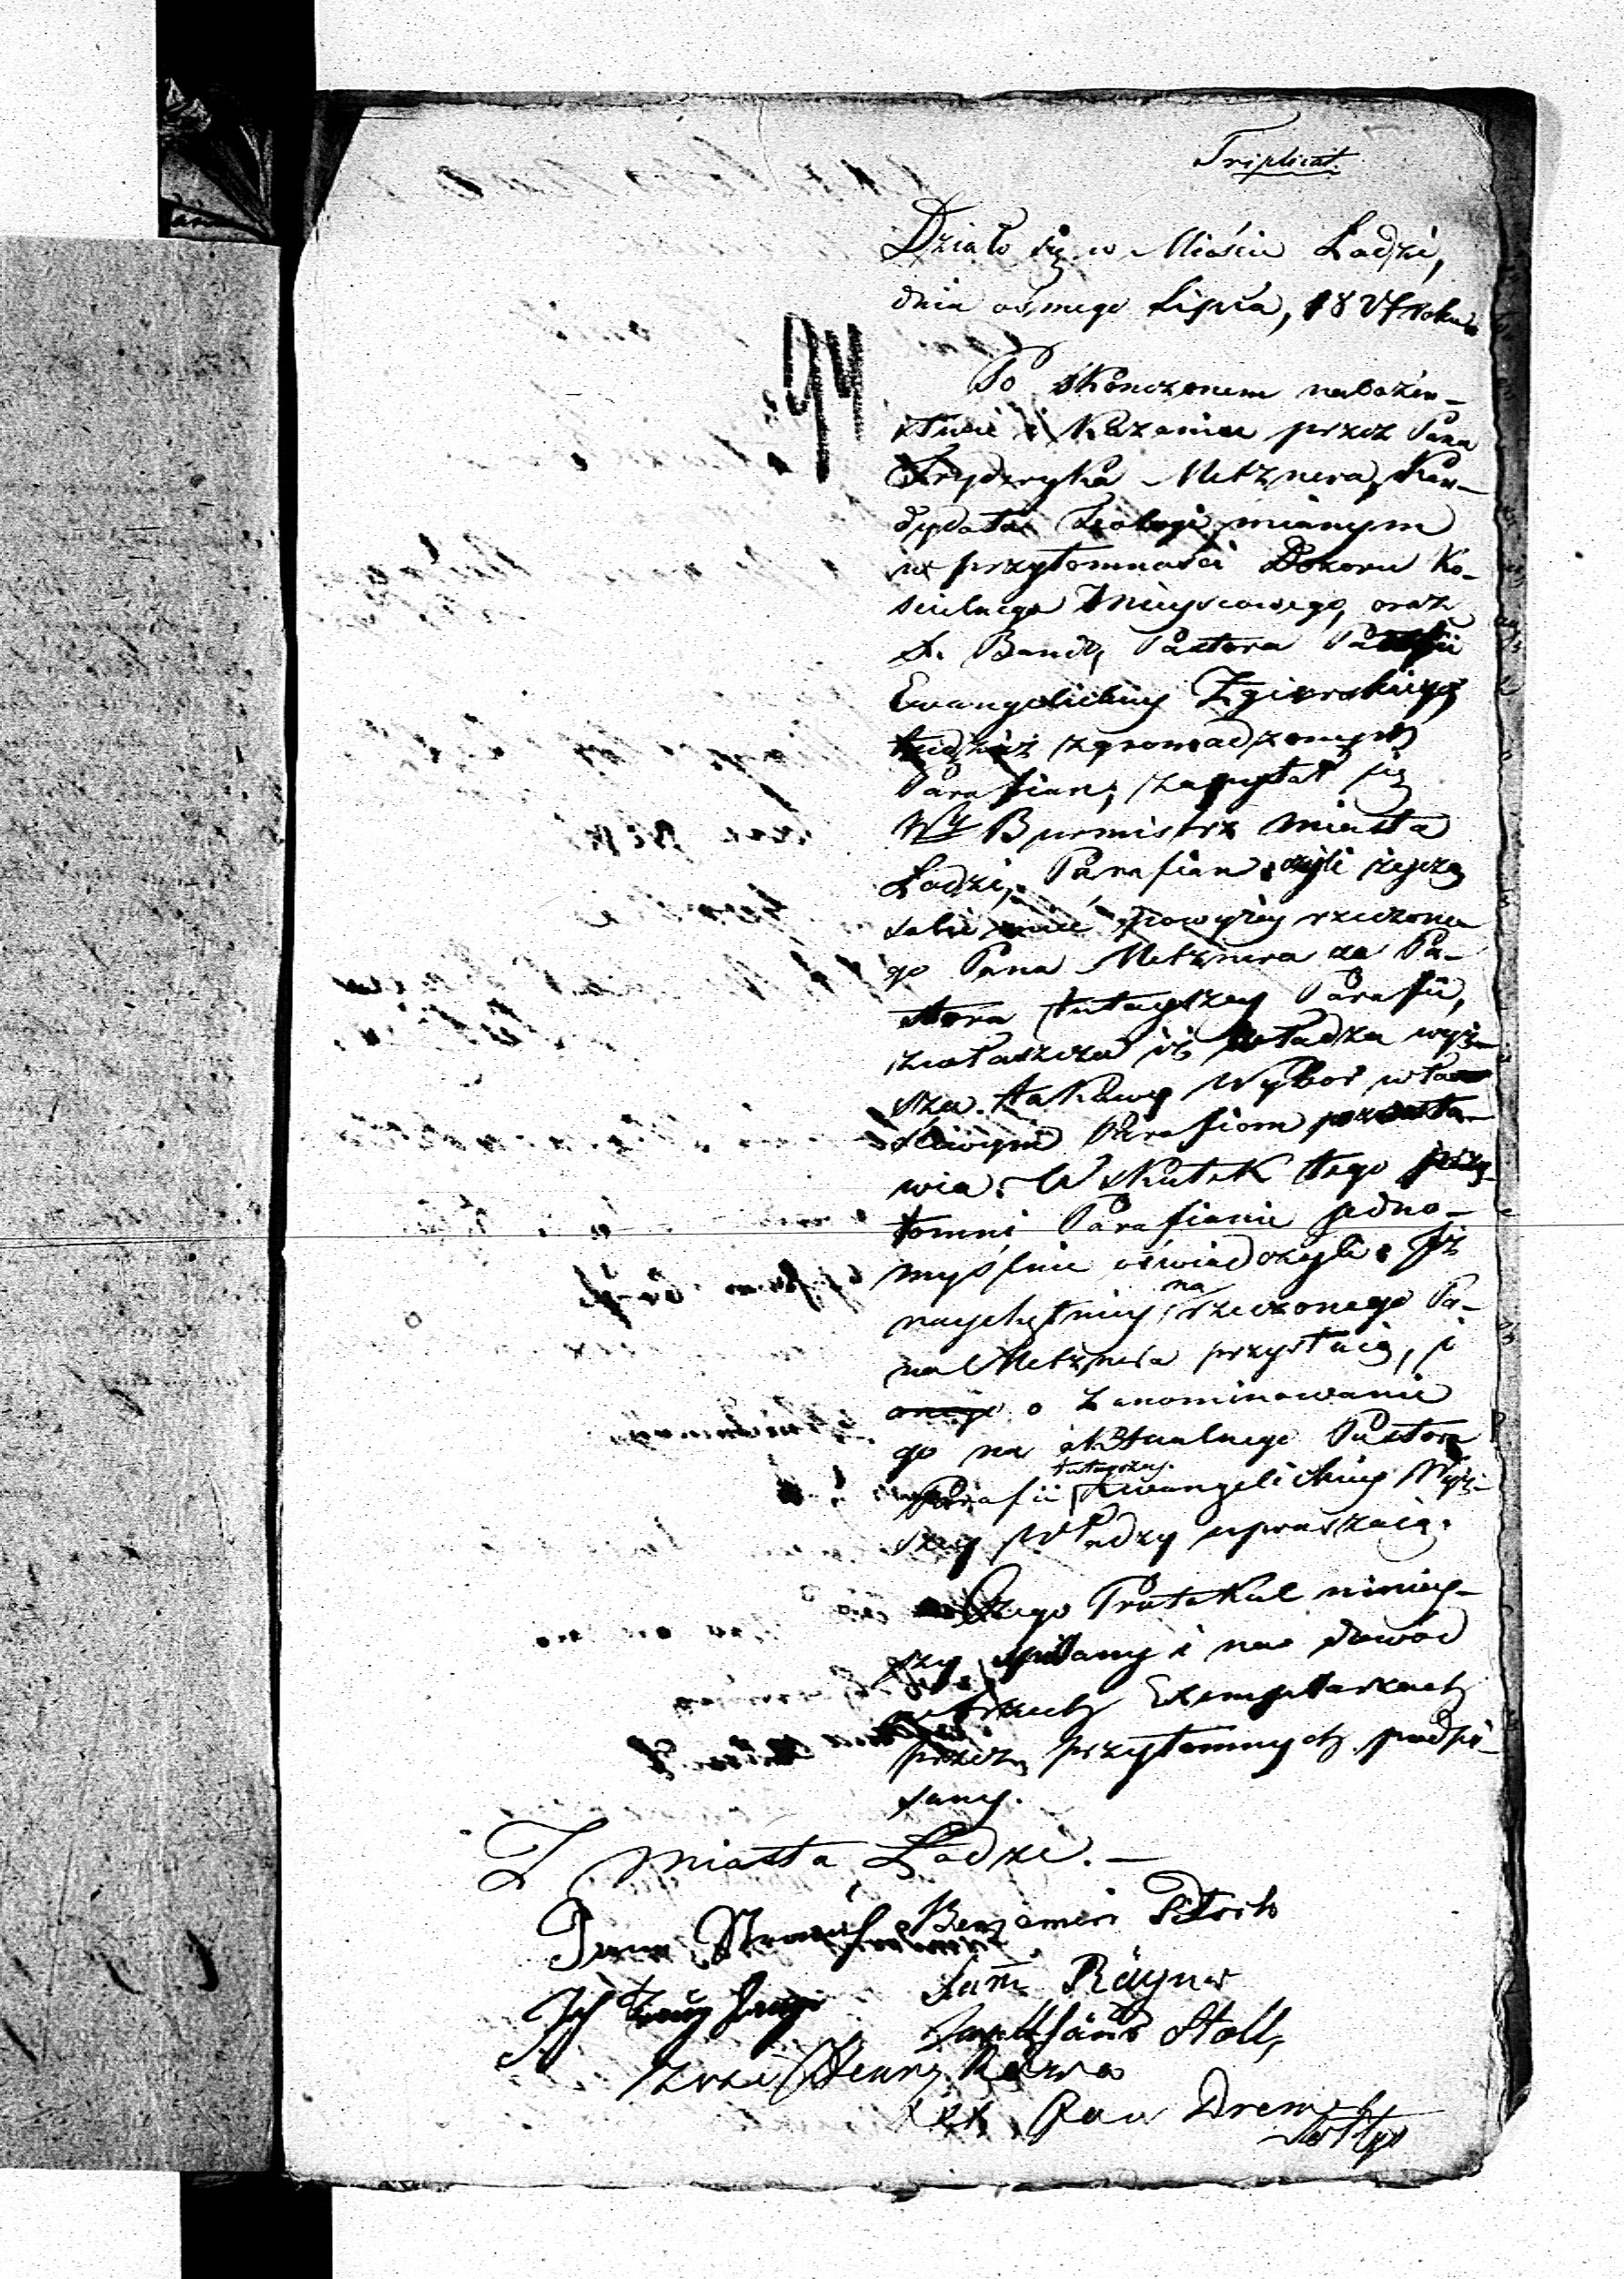 Triplicat.
Działo się w Mieście Łodzi,
dnia osmego Lipca, 18 roku
94
Po skończonem nabożeń-
stwie i Kazaniu przez Pana
Frydryka Metznera, Kan-
dydata Teologi mianym
w przytomności Dozoru Ko-
ścielnego Mieyscowego, oraz
X. Bando, Pastora Parafii
Ewangelickiey Zgierskiey,
tudzież zgromadzonych
Parafian, zapytał się
Wy Burmistrz Miasta
Łodzi, Parafian, czyli życzą
sobie mieć powyżey rzeczone
go Pana Metznera za Pa-
stora tuteyszey Parafii,
zwłaszcza iż Władza wyż-
sza takowy Wybor
Parafiom pozosta-
wia. W skutek tego przy-
tomni Parafianie jedno-
myślnie oświadczyli, Jż
naychętniey na rzeczonego Pa-
na Metznera przystaią, i
o zanominowanie
go na aktualnego Pastora
Parafii tuteyszey Ewangelickiey Wyż-
szey Władzy upraszaią.
Czego Protokuł niniey-
szy spisany i na dowod
w trzech Exemplarzach
przez przytomnych podpi-
sany.
Z Miasta Łodzi. —
Benjamin
Sam.
Stoll,
Henry
xxx Dre